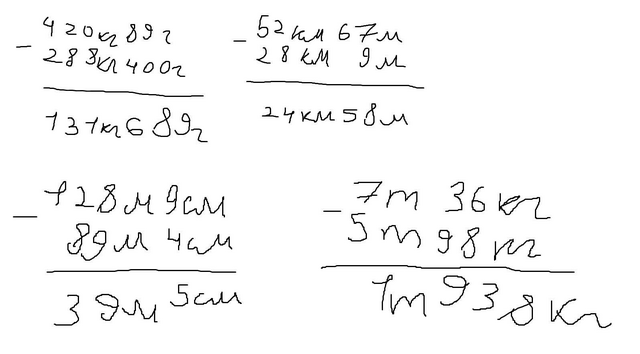 - 420кг 89г
288кг 400г
131кг 689г
- 52км 67м
28км 9м
24км 58м
- 128м 9см
89м 4см
39м 5см
- 7т 36кг
5т 98кг
1т 938кг